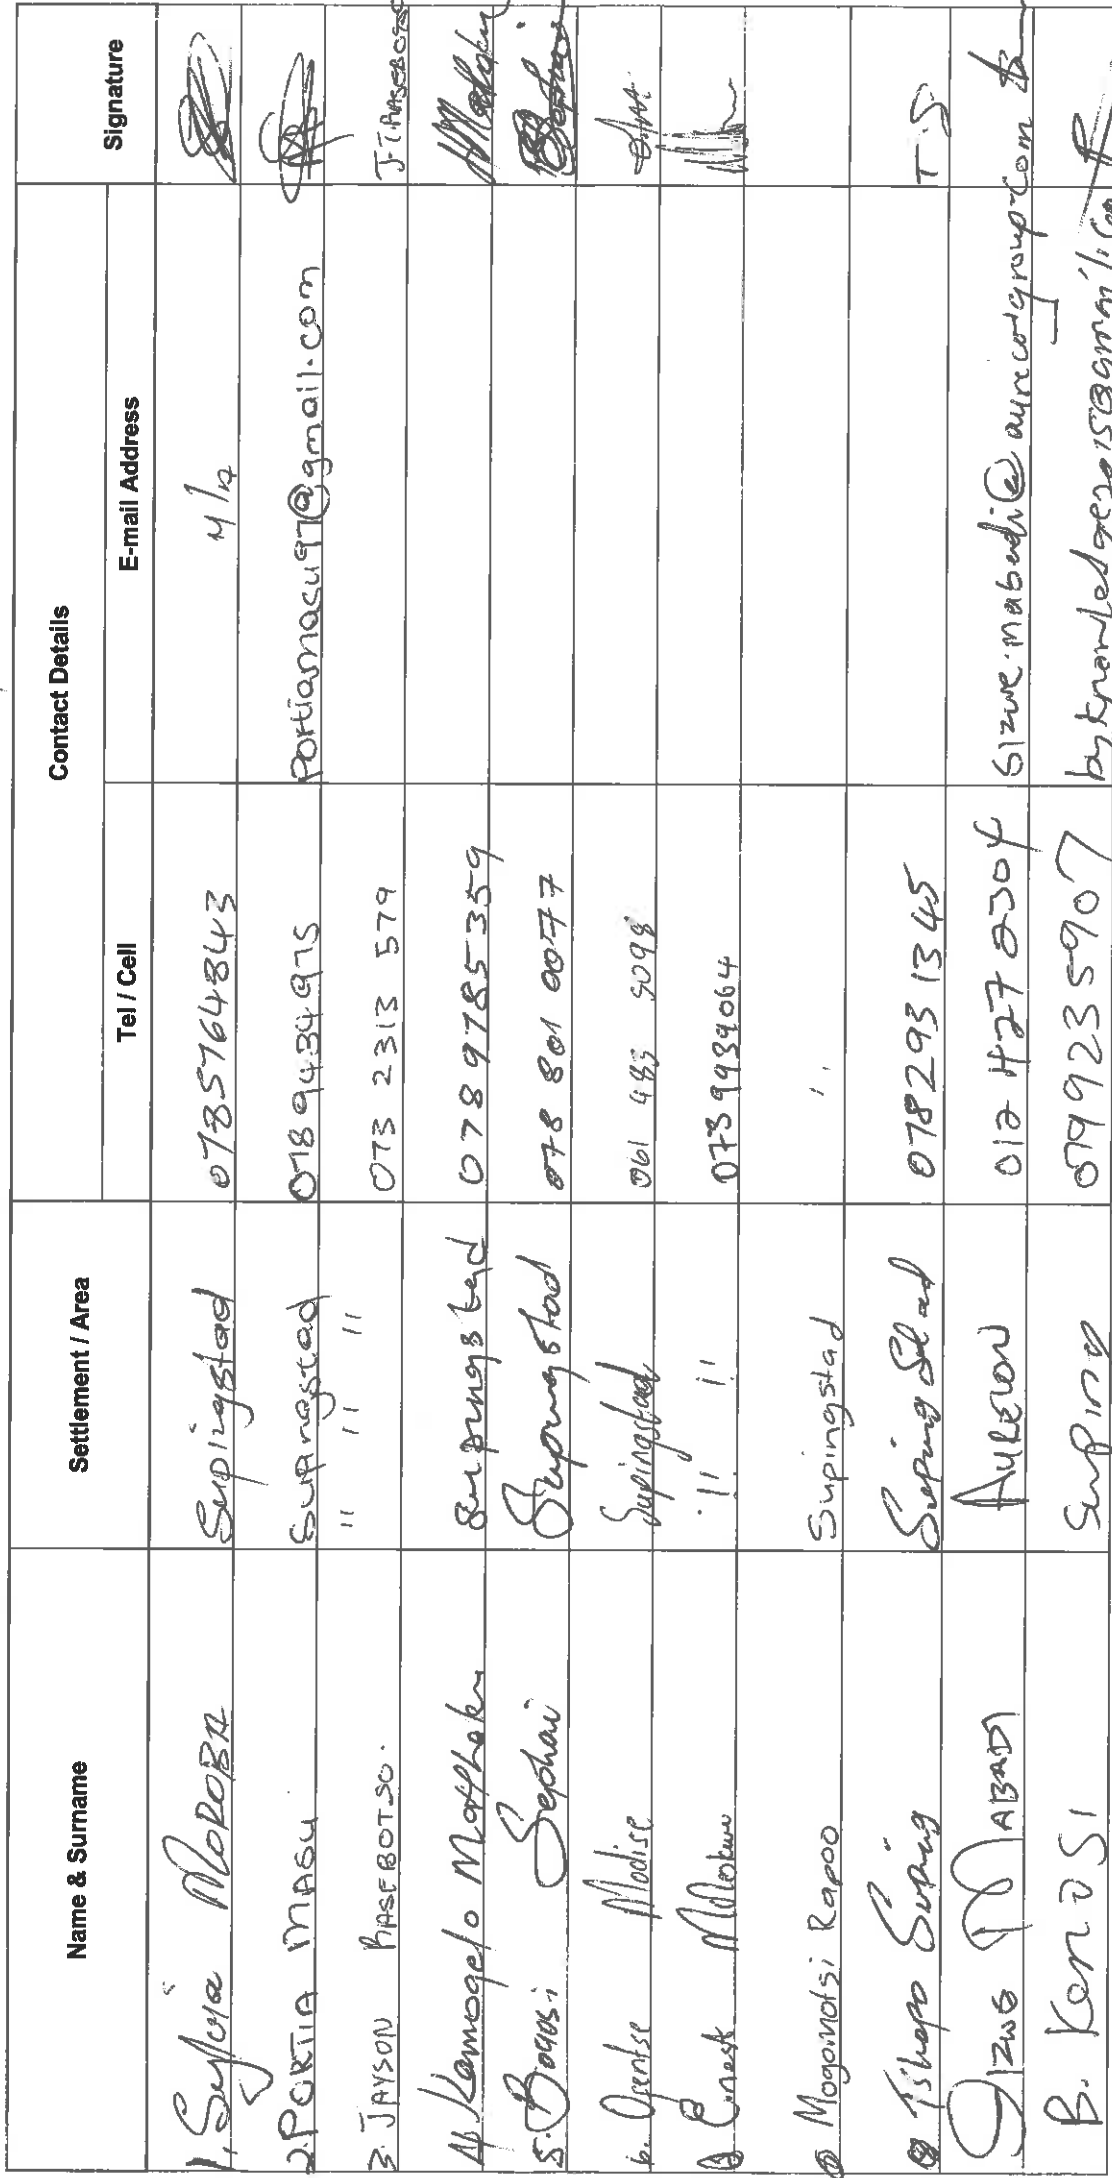 Name & Surname Settlement / Area Contact Details Signature
Tel / Cell E-mail Address
1. Sylvia MOROBA Supingstad 0785764843 N/A
2. PORTIA MASU Supingstad 0789434975 Portiamacu97@gmail.com
3. JAYSON RASEBOTSO. " " " 073 2313 579 J.T RASEBOTSO
4. Kamogelo Motlhoki Supingstad 0789785359
5. Boqosi Sephai Supingstad 078 801 0077
6. Orentse Modise Supingstad 061 483 5098
Ernest " " 0739939064
Mogomotsi Rapoo Supingstad "
Tshepo Suping Supingstad 0782931345 T.S
Sizwe MABADI AURECON 012 427 2304 Sizwe.mabadi@aurecongroup.com
B. Kenosi Suping 0799235907